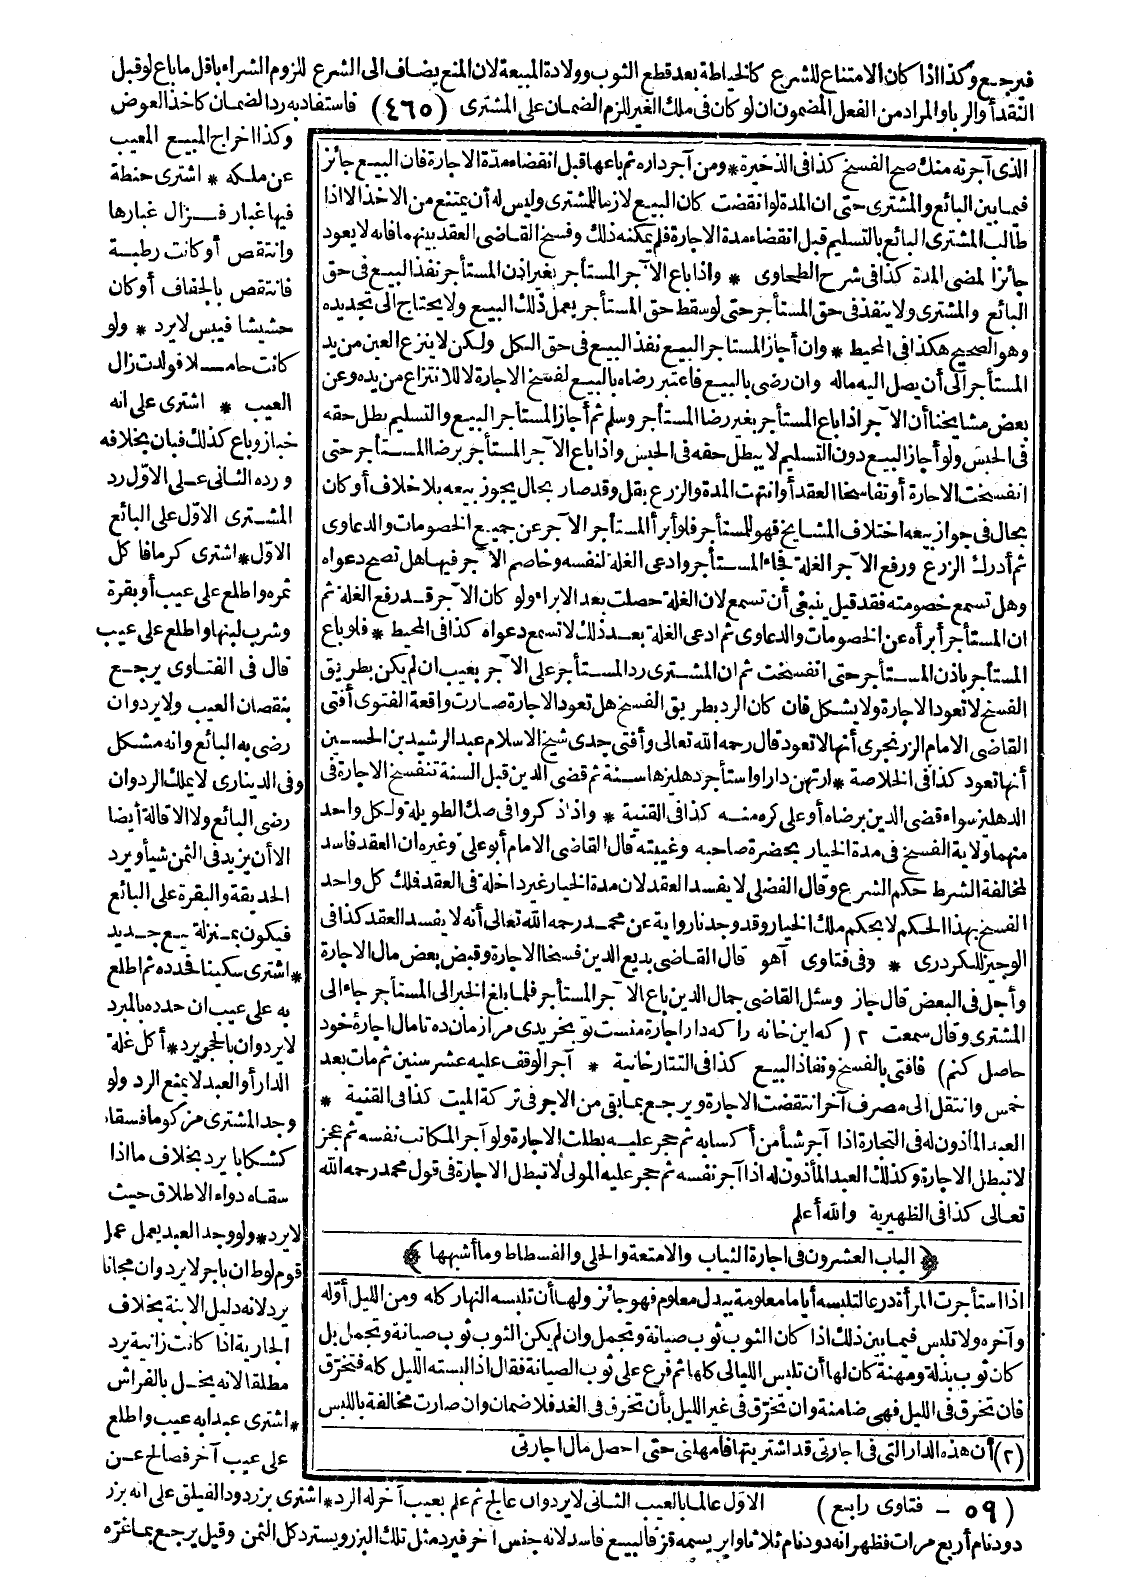 فيرجع وكذا اذا كان الامتناع للشرع كالخياطة بعد قطع الثوب وولادة المبيعة لان المنع يضاف الى الشرع للزوم الشراء باقل ما باع لو قبل
النقد أو الربا والمراد من الفعل المضمون ان لو كان فى ملك الغير للزم الضمان على المشترى (٤٦٥) فاستفاد به رد الضمان كاخذ العوض
وكذا اخراج المبيع المعيب
عن ملكه * اشترى حنطة
فيها غبار فزال غبارها
وانتقص أو كانت رطبة
فانتقص بالجفاف أو كان
حشيشا فيبس لا يرد * ولو
كانت حاملا فولدت زال
العيب * اشترى على انه
خباز وباع كذلك فبان بخلافه
ورده الثانى على الاوّل رد
المشترى الاوّل على البائع
الاوّل * اشترى كرما فا كل
ثمره واطلع على عيب أو بقرة
وشرب لبنها واطلع على عيب
قال فى الفتاوى يرجع
بنقصان العيب ولا يرد وان
رضى به البائع وانه مشكل
وفى الدينارى لا يملك الرد وان
رضى البائع ولا الاقالة أيضا
الا أن يزيد فى الثمن شيأ ويرد
الحديقة والبقرة على البائع
فيكون بمنزلة بيع جديد
* اشترى سكينا فحدده ثم اطلع
به على عيب ان حدده بالمبرد
لا يرد وان بالحجر يرد * أكل غلة
الدار أو العبد لا يمنع الرد ولو
وجد المشترى مزكوما فسقاه
كشكابا يرد بخلاف ما اذا
سقاه دواء الاطلاق حيث
لا يرد * ولو وجد العبد يعمل عمل
قوم لوط ان باجر لا يرد وان مجانا
يرد لانه دليل الابنة بخلاف
الجارية اذا كانت زانية يرد
مطلقا لانه يخل بالفراش
* اشترى عبدا به عيب واطلع
على عيب آخر فصالح عن
الذى آجرته منك صح الفسخ كذا فى الذخيرة * ومن آجر داره ثم باعها قبل انقضاء مدة الاجارة فان البيع جائز
فيما بين البائع والمشترى حتى ان المدة لو انقضت كان البيع لازما للمشترى وليس له أن يمتنع من الاخذ الا اذا
طالب المشترى البائع بالتسليم قبل انقضاء مدة الاجارة فلم يمكنه ذلك وفسخ القاضى العقد بينهما فانه لا يعود
جائزا لمضى المدة كذا فى شرح الطحاوى * واذا باع الآجر المستأجر بغير اذن المستأجر نفذ البيع فى حق
البائع والمشترى ولا ينفذ فى حق المستأجر حتى لو سقط حق المستأجر يعمل ذلك البيع ولا يحتاج الى تجديده
وهو الصحيح هكذا فى المحيط * وان أجاز المستأجر البيع نفذ البيع فى حق الكل ولكن لا ينزع العين من يد
المستأجر الى أن يصل اليه ماله وان رضى بالبيع فاعتبر رضاه بالبيع لفسخ الاجارة لا للانتزاع من يده وعن
بعض مشايخنا أن الآجر اذا باع المستأجر بغير رضا المستأجر وسلم ثم أجاز المستأجر البيع والتسليم بطل حقه
فى الحبس ولو أجاز البيع دون التسليم لا يبطل حقه فى الحبس واذا باع الآجر المستأجر برضا المستأجر حتى
انفسخت الاجارة أو تفاسخا العقد أو انتهت المدة والزرع بقل وقد صار بحال يجوز بيعه بلا خلاف أو كان
بحال فى جواز بيعه اختلاف المشايخ فهو للمستأجر فلو أبرأ المستأجر الآجر عن جميع الخصومات والدعاوى
ثم أدرك الزرع ورفع الآجر الغلة فجاء المستأجر وادعى الغلة لنفسه وخاصم الآجر فيها هل تصح دعواه
وهل تسمع خصومته فقد قيل ينبغى أن تسمع لان الغلة حصلت بعد الابراء ولو كان الآجر قد رفع الغلة ثم
ان المستأجر أبرأه عن الخصومات والدعاوى ثم ادعى الغلة بعد ذلك لا تسمع دعواه كذا فى المحيط * فلو باع
المستأجر باذن المستأجر حتى انفسخت ثم ان المشترى رد المستأجر على الآجر بعيب ان لم يكن بطريق
الفسخ لا تعود الاجارة ولا يشكل فان كان الرد بطريق الفسخ هل تعود الاجارة صارت واقعة الفتوى أفتى
القاضى الامام الزرنجرى أنها لا تعود قال رحمه الله تعالى وأفتى جدى شيخ الاسلام عبد الرشيد بن الحسين
أنها تعود كذا فى الخلاصة * ارتهن دارا واستأجر دهليزها سنة ثم قضى الدين قبل السنة تنفسخ الاجارة فى
الدهليز سواء قضى الدين برضاه أو على كره منه كذا فى القنية * واذ ذكروا فى صك الطويلة ولكل واحد
منهما ولاية الفسخ فى مدة الخيار بحضرة صاحبه وغيبته قال القاضى الامام أبو على وغيره ان العقد فاسد
لمخالفة الشرط حكم الشرع وقال الفضلى لا يفسد العقد لان مدة الخيار غير داخلة فى العقد فلك كل واحد
الفسخ بهذا الحكم لا بحكم ملك الخيار وقد وجدنا رواية عن محمد رحمه الله تعالى أنه لا يفسد العقد كذا فى
الوجيز للكردرى * وفى فتاوى آهو قال القاضى بديع الدين فسخا الاجارة وقبض بعض مال الاجارة
وأجل فى البعض قال جاز وسئل القاضى جمال الدين باع الآجر المستأجر فلما بلغ الخبر الى المستأجر جاء الى
المشترى وقال سمعت ٢ (كه اين خانه را كه در اجارة منست تو بخريدى مرا زمان ده تا مال اجارۀ خود
حاصل كنم) فافتى بالفسخ ونفاذ البيع كذا فى التتارخانية * آجر الوقف عليه عشر سنين ثم مات بعد
خمس وانتقل الى مصرف آخر انتقضت الاجارة ويرجع بما بقى من الاجر فى تركة الميت كذا فى القنية *
العبد المأذون له فى التجارة اذا آجر شيأ من أكسابه ثم حجر عليه بطلت الاجارة ولو آجر المكاتب نفسه ثم عجز
لا تبطل الاجارة وكذلك العبد المأذون له اذا آجر نفسه ثم حجر عليه المولى لا تبطل الاجارة فى قول محمد رحمه الله
تعالى كذا فى الظهيرية والله أعلم
﴿ الباب العشرون فى اجارة الثياب والامتعة والحلى والفسطاط وما أشبهها ﴾
اذا استأجرت المرأة درعا لتلبسه أياما معلومة ببدل معلوم فهو جائز ولها أن تلبسه النهار كله ومن الليل أوّله
وآخره ولا تلبس فيما بين ذلك اذا كان الثوب ثوب صيانة وتجمل وان لم يكن الثوب ثوب صيانة وتجمل بل
كان ثوب بذلة ومهنة كان لها أن تلبس الليالى كلها ثم فرع على ثوب الصيانة فقال اذا لبسته الليل كله فتخرّق
فان تخرق فى الليل فهى ضامنة وان تخرّق فى غير الليل بأن تخرق فى الغد فلا ضمان وان صارت مخالفة باللبس
(٢) أن هذه الدار التى فى اجارتى قد اشتريتها فامهلنى حتى احصل مال اجارتى
(٥٩ - فتاوى رابع) الاوّل عالما بالعيب الثانى لا يرد وان عالج ثم علم بعيب آخر له الرد * اشترى بزر دود الفيلق على انه بزر
دود نام أربع مرات فظهر انه دود نام ثلاثا وابريسمه قز فالبيع فاسد لانه جنس آخر فيرد مثل تلك البزر ويسترد كل الثمن وقيل يرجع بما غرّه